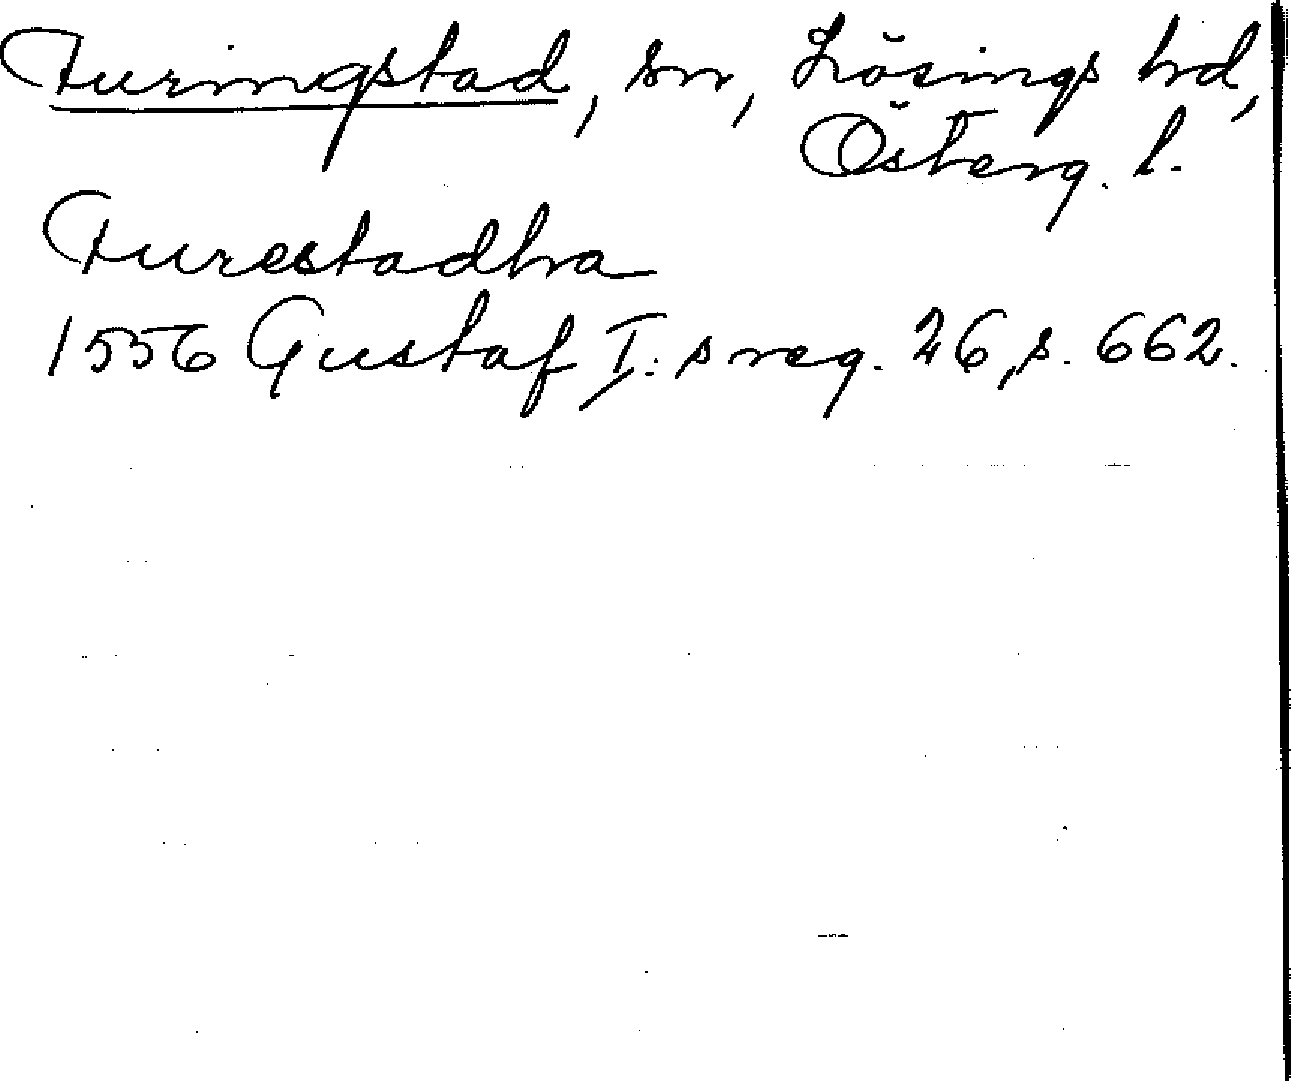 Furingstad, sn, Lösings hd,
Österg. l.
Furestadha
1556 Gustaf I:s reg. 26, s. 662.